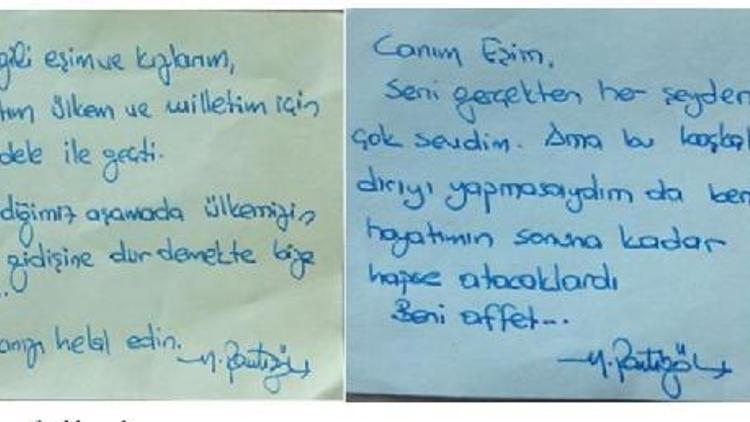 gili eşim ve kızlarım,
tım ülkem ve milletim için
dele ile geçti.
diğimiz aşamada ülkemizin
gidişine dur demekte bize
..
anızı helal edin.
Canım Eşim,
Seni gerçekten her şeyden
çok sevdim. Ama bu başkal
dırıyı yapmasaydım da beni
hayatımın sonuna kadar
hapse atacaklardı
Beni affet...